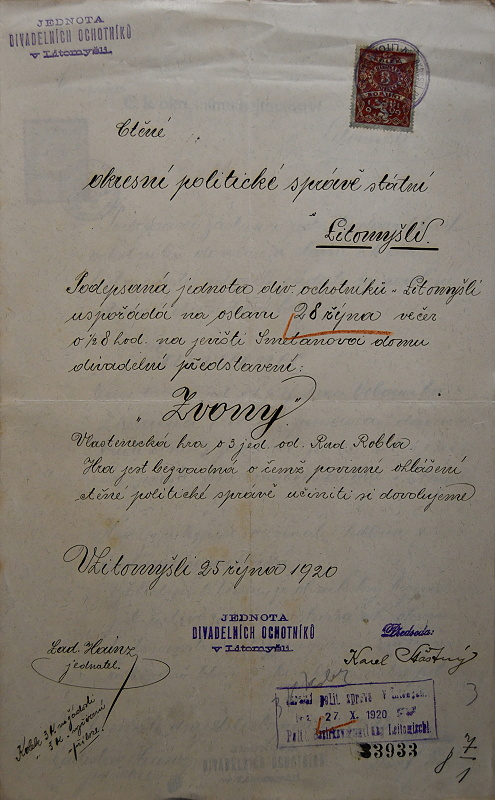 JEDNOTA
DIVADELNÍCH OCHOTNÍKŮ
v Litomyšli.
3
Ctěné
okresní politické správě státní
v Litomyšli.
Podepsaná jednota div. ochotníků v Litomyšli
uspořádá na oslavu 28 října večer
o ½ 8 hod. na jevišti Smetanova domu
divadelní představení:
"Zvony"
Vlastenecká hra o 3 jed. od. Rud. Robla
Hra jest bezvadná o čemž povinné ohlášení
ctěné politické správě učiniti si dovolujeme
V Litomyšli 25 října 1920
JEDNOTA
DIVADELNÍCH OCHOTNÍKŮ
v Litomyšli.
Předseda:
Lad. Hainz
jednatel.
Karel Šťastný
polit. správa v Litomyšli
27. X. 1920
33933
Kolek 3 K na žádosti
3 K
7
1